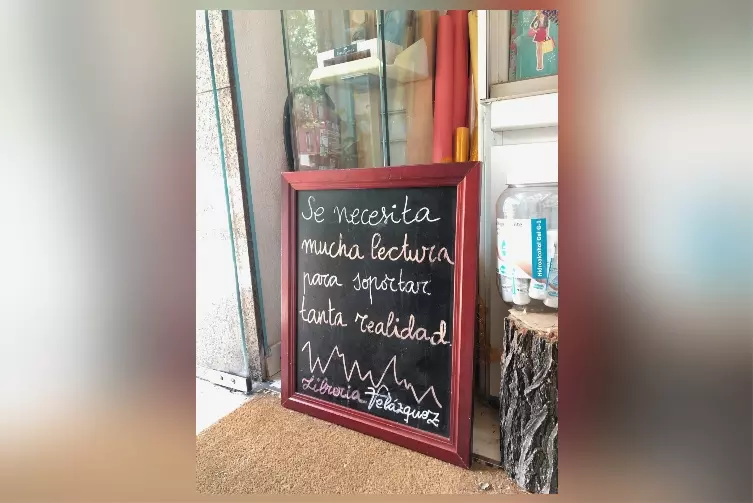 Se necesita
mucha lectura
para soportar
tanta realidad.
Librería Velázquez
Hidroalcohol Gel G-1